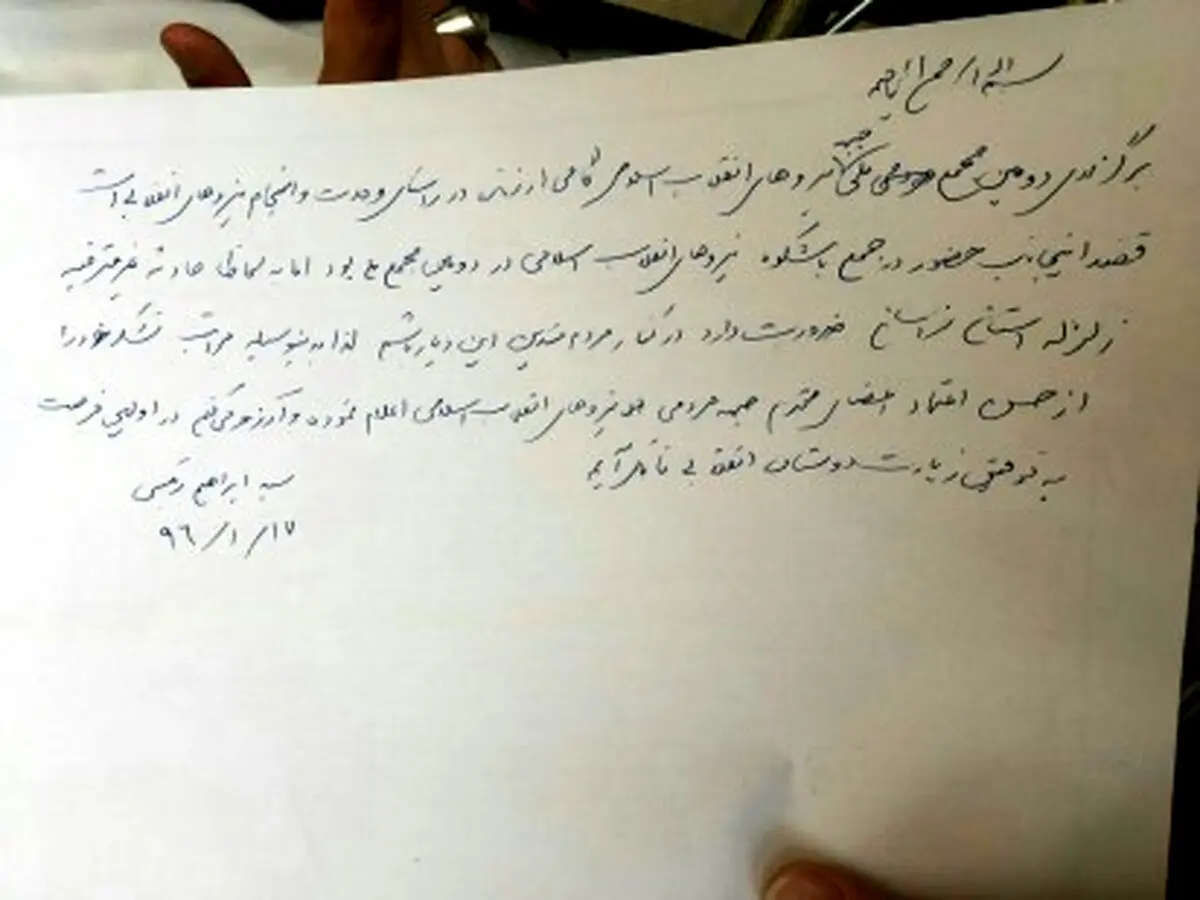 بسم الله الرحمن الرحیم
جبهه
برگزاری دومین مجمع ملی نیروهای انقلاب اسلامی گامی ارزنده در راستای وحدت و انسجام نیروهای انقلابی است
قصد اینجانب حضور در جمع باشکوه نیروهای انقلاب اسلامی در دومین مجمع ملی بود اما به لحاظ حادثه غیرمترقبه
زلزله استان خراسان ضرورت دارد در کنار مردم متدین این دیار باشم لذا بدینوسیله مراتب تشکر خود را
از حسن اعتماد اعضای محترم جبهه مردمی نیروهای انقلاب اسلامی اعلام نموده و آرزو می‌کنم در اولین فرصت
به توفیق زیارت دوستان انقلابی نائل آیم
سید ابراهیم رئیسی
۱۷/۱/۹۶